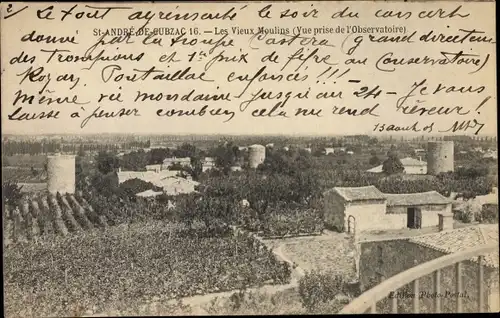 Le tout agrémenté le soir du concert
St-ANDRÉ-DE-CUBZAC 16. — Les Vieux Moulins (Vue prise de l'Observatoire)
donné par la troupe Castéra (grand directeur
des Trompions et 1er prix de fifre au Conservatoire)
Royan, Pontaillac enfoncés !!! —
Même vie mondaine jusqu'au 24 — Je vous
laisse à penser combien cela me rend rêveur !
13 août 05
Edition Photo-Postal.